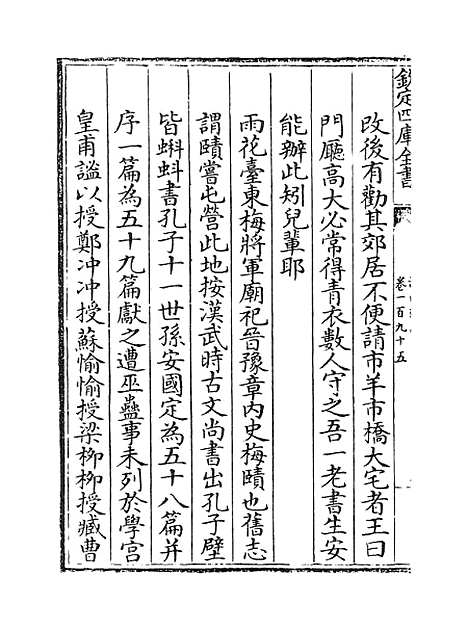 欽定四庫全書
卷一百九十五
改後有勸其郊居不便請市羊市橋大宅者王曰
門廳高大必常得青衣數人守之吾一老書生安
能辦此矧兒輩耶
雨花臺東梅將軍廟祀晉豫章内史梅賾也舊志
謂賾嘗屯營此地按漢武時古文尚書出孔子壁
皆蝌蚪書孔子十一世孫安國定為五十八篇并
序一篇為五十九篇獻之遭巫蠱事未列於學宫
皇甫謐以授鄭冲冲授蘇愉愉授梁柳柳授臧曹